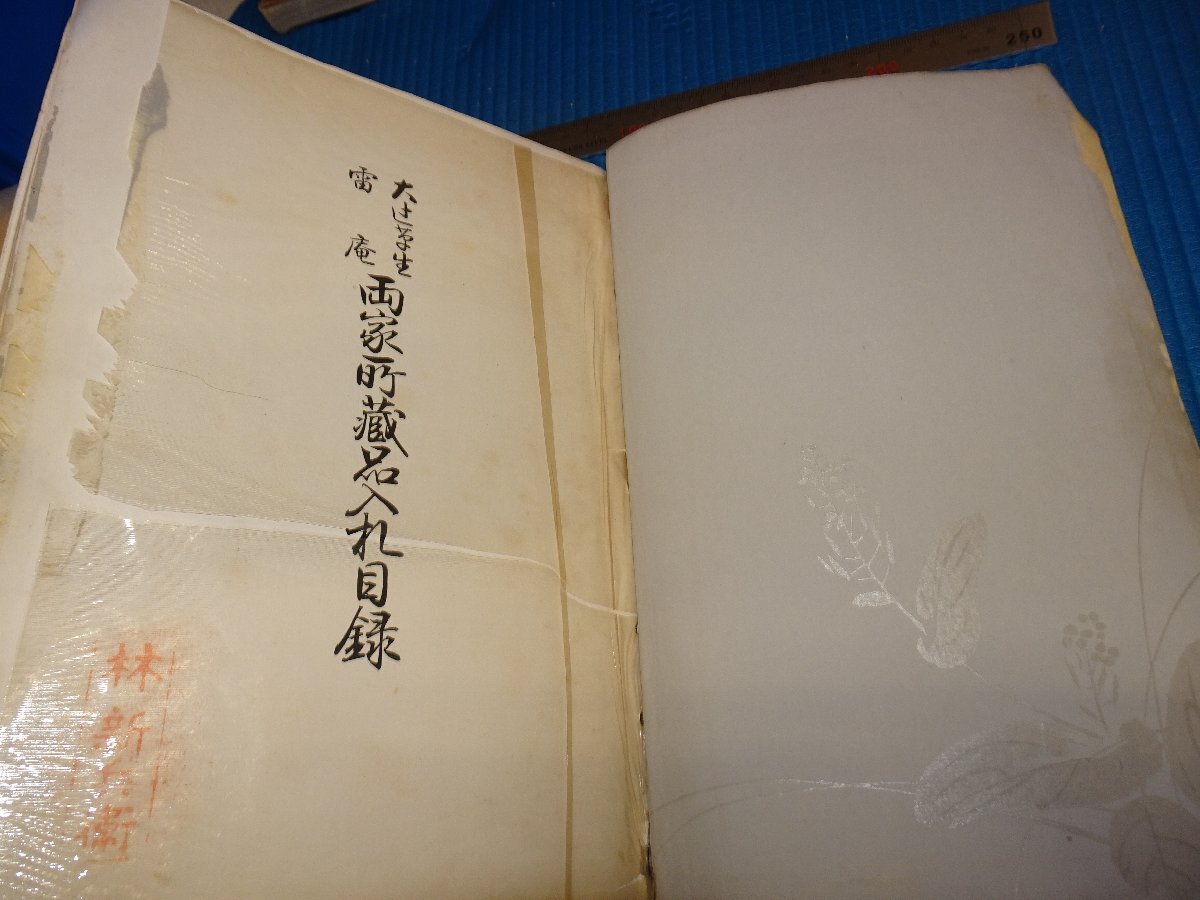 大辻草生
雷庵
両家所蔵品入札目録
林新兵衛
250
200